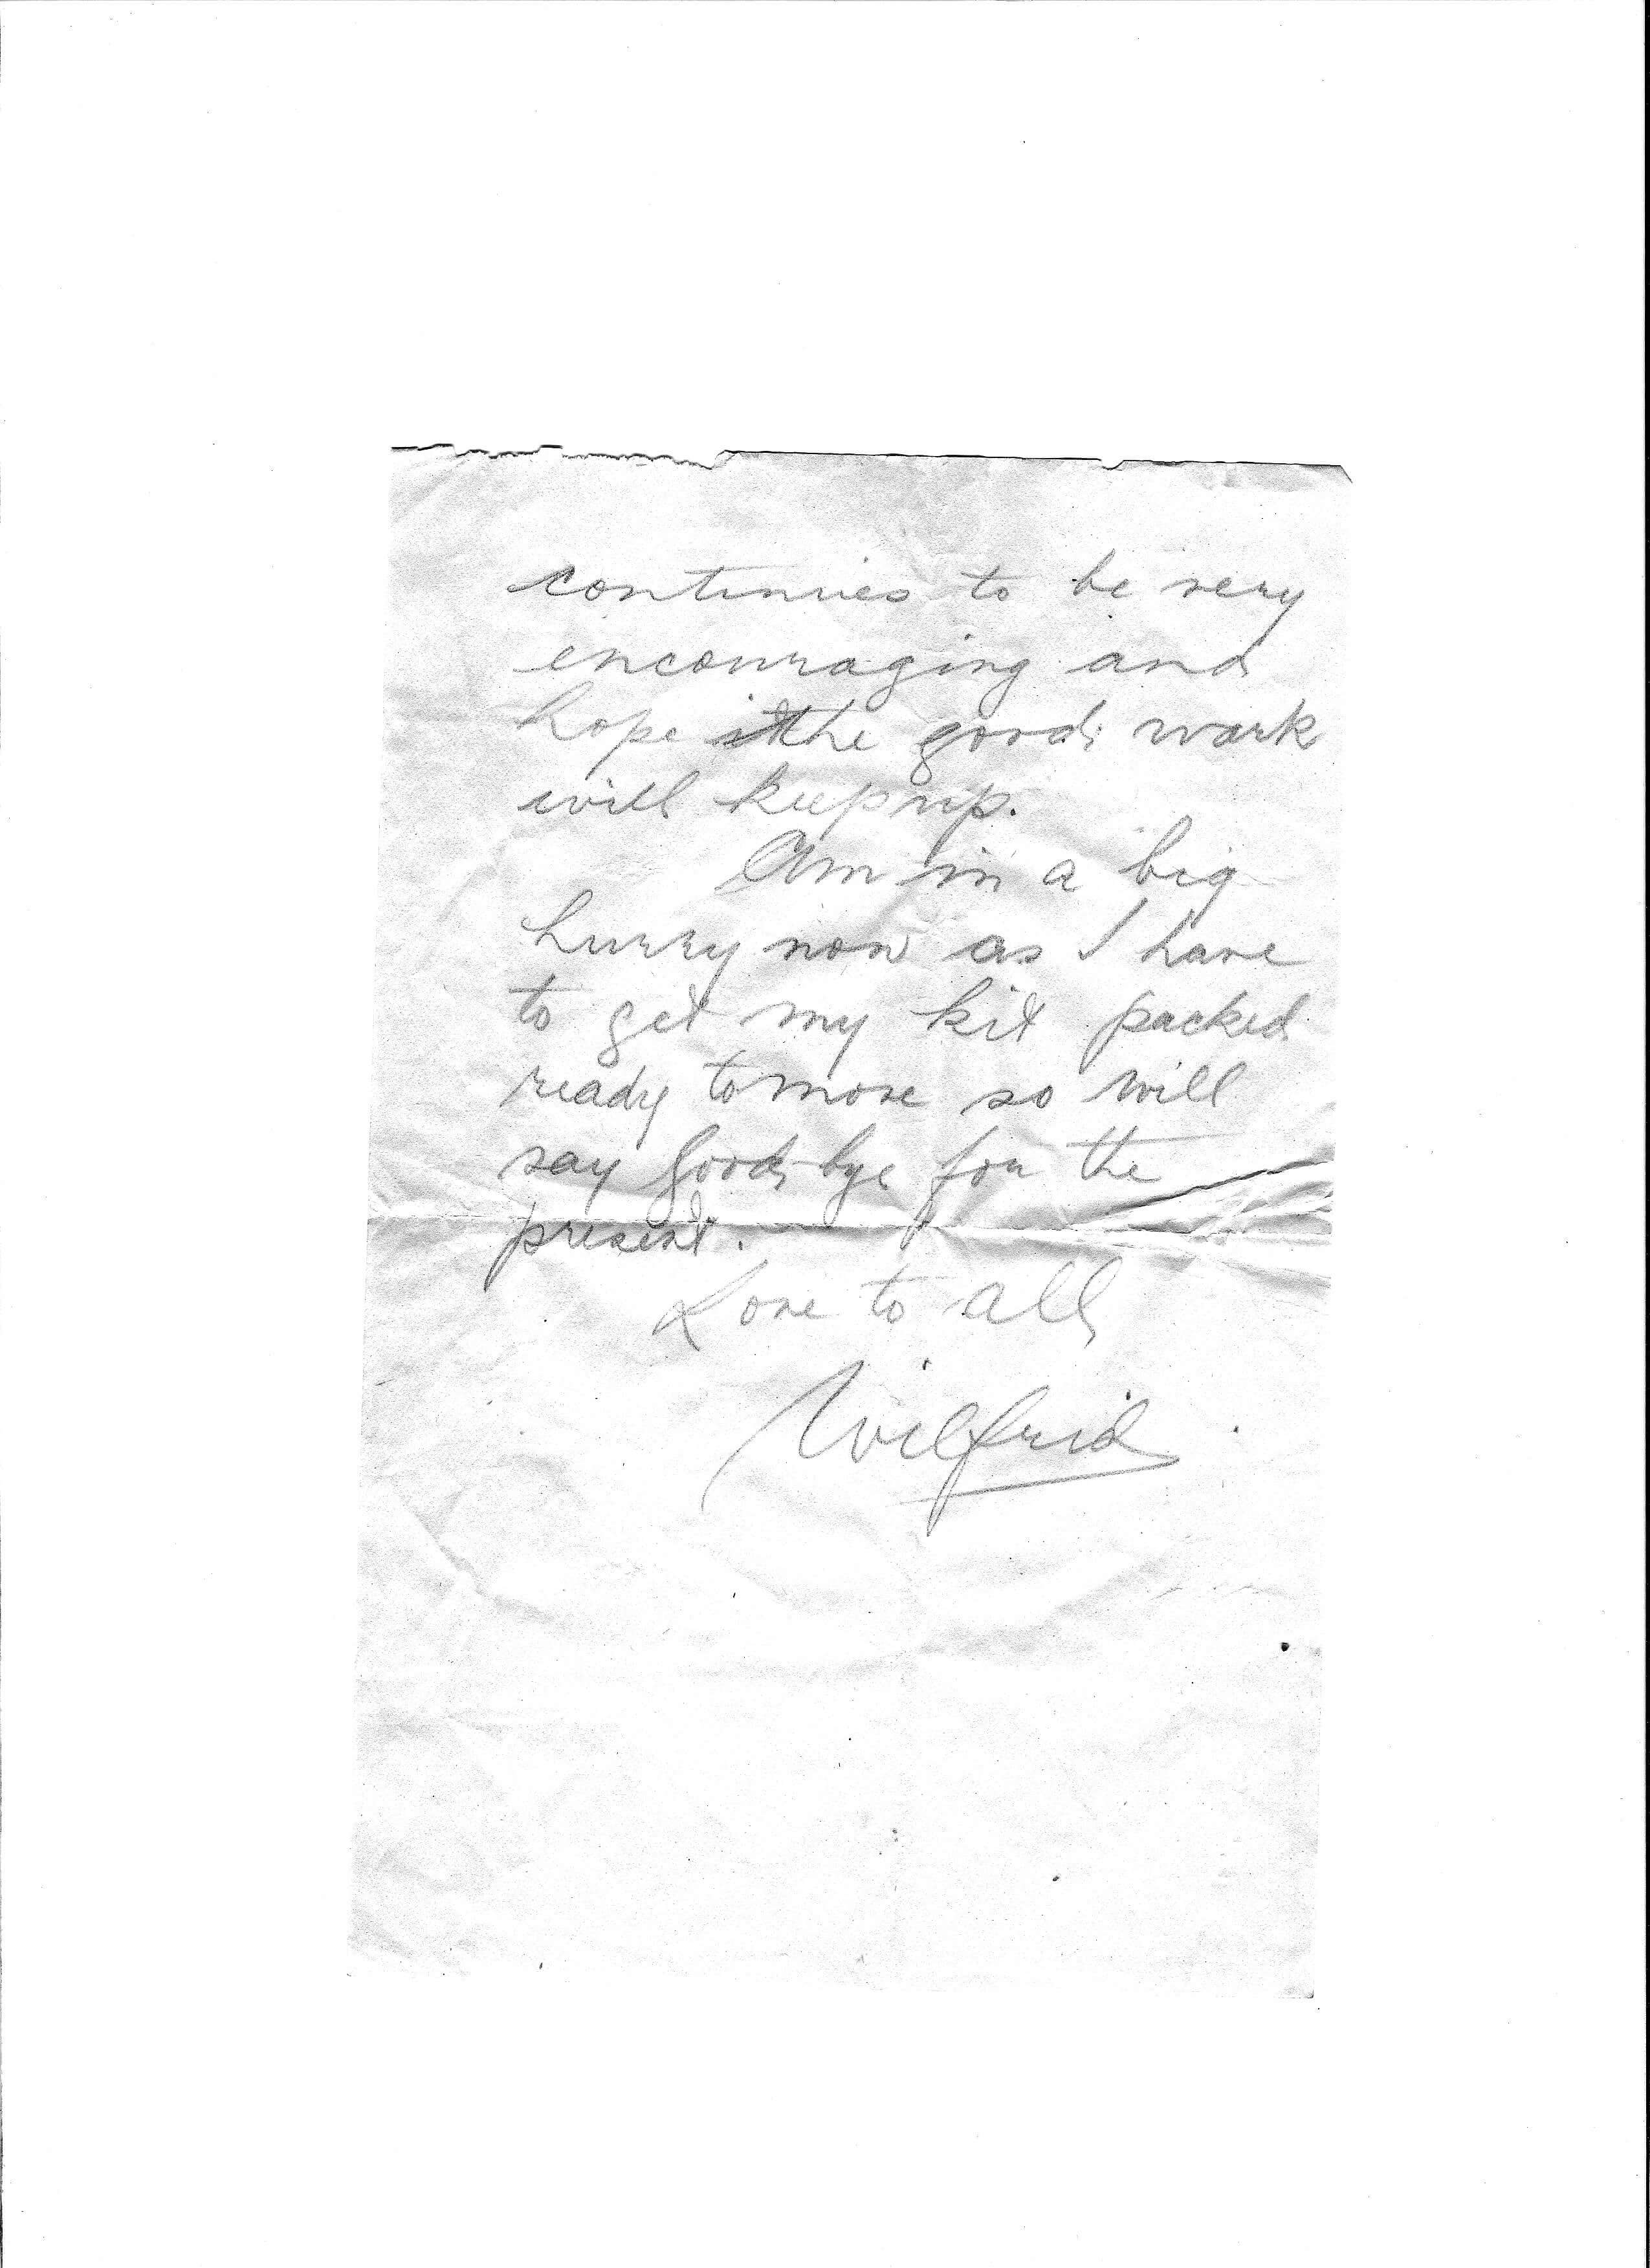 continues to be very
encouraging and
hope the good work
will keep up.
Am in a big
hurry now as I have
to get my kit packed
ready to move so will
say good-bye for the
present.
Love to all
Wilfrid